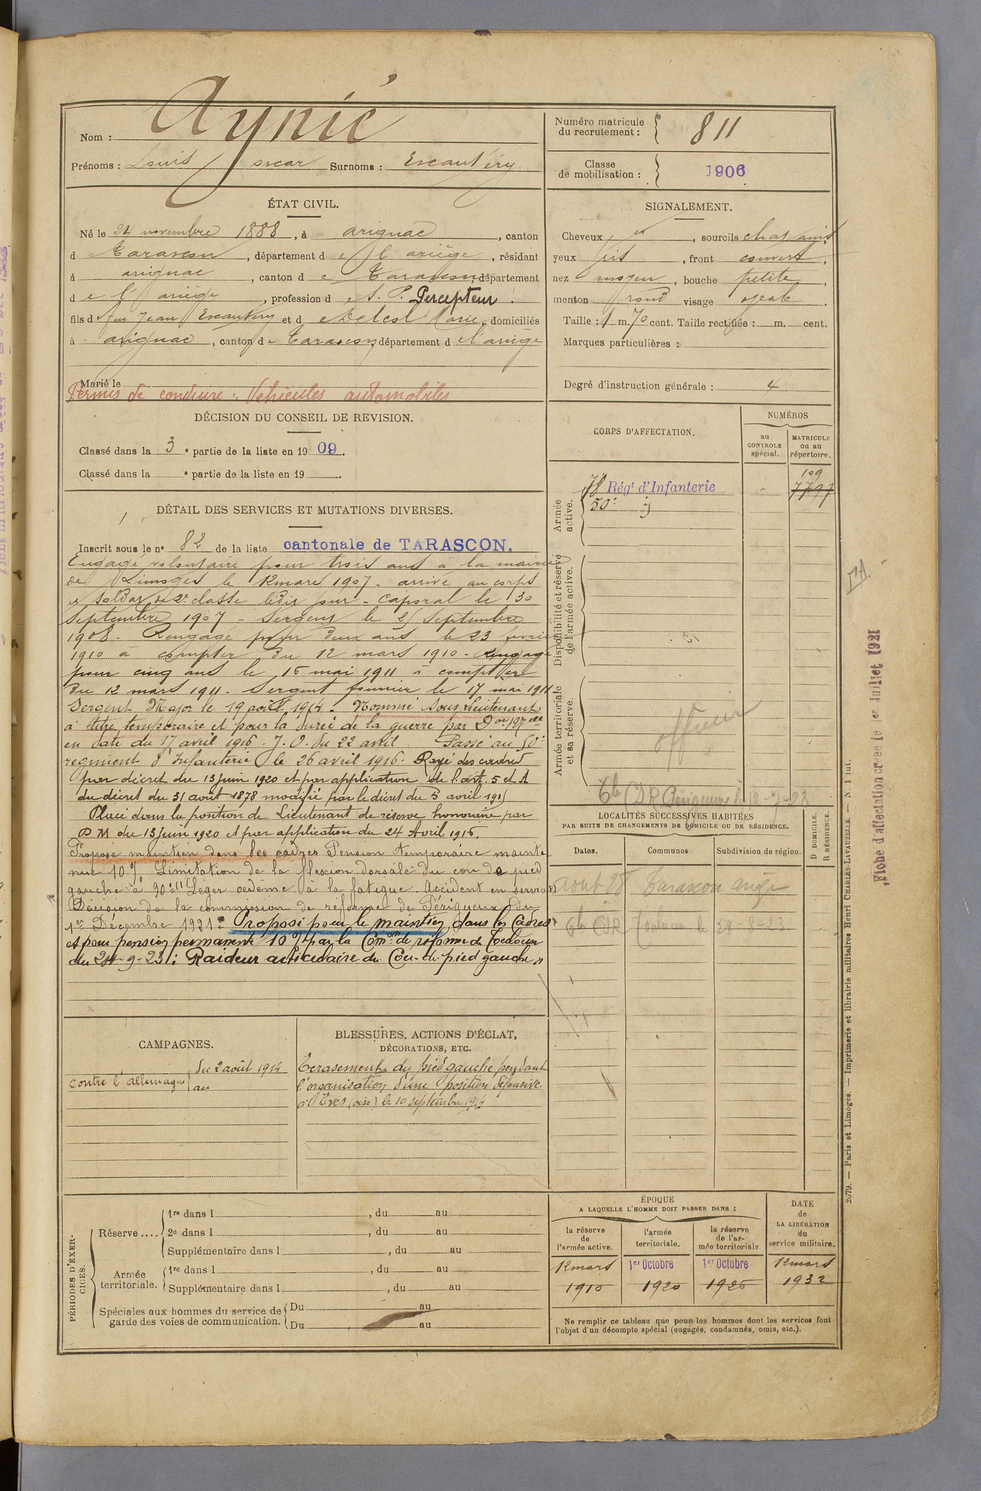 Nom : Aynié
Prénoms : Louis Oscar Surnoms : Escautéry
Numéro matricule du recrutement : 811
Classe de mobilisation : 1906
ÉTAT CIVIL.
Né le 24 novembre 1888, à Arignac, canton
de Tarascon, département de l'Ariège, résidant
à Arignac, canton de Tarascon, département
de l'Ariège, profession de S. P. Percepteur.
fils de feu Jean Escautéry et de Delcol Marie, domiciliés
à Arignac, canton de Tarascon département de l'Ariège
Marié le
Permis de conduire : Véhicules automobiles
SIGNALEMENT.
Cheveux et, sourcils chatains,
yeux gris, front couvert,
nez moyen, bouche petite,
menton rond visage ovale
Taille : 1 m. 70 cent. Taille rectifiée : m. cent.
Marques particulières :
Degré d'instruction générale : 4
DÉCISION DU CONSEIL DE REVISION.
Classé dans la 3e partie de la liste en 1909.
Classé dans la e partie de la liste en 19 .
CORPS D'AFFECTATION.
NUMÉROS
au CONTROLE spécial.
MATRICULE ou au répertoire.
Armée active.
78 Régt d'Infanterie " 7797
109
50e
Disponibilité et réserve de l'armée active.
Armée territoriale et sa réserve.
officier
DÉTAIL DES SERVICES ET MUTATIONS DIVERSES.
Inscrit sous le n° 82 de la liste cantonale de TARASCON.
Engagé volontaire pour trois ans à la mairie
de Limoges le 12 mars 1907. arrivé au corps
et soldat de 2e classe ledit jour. Caporal le 30
Septembre 1907 - Sergent le 25 Septembre
1908. Rengagé pour deux ans le 23 février
1910 à compter du 12 mars 1910 - rengagé
pour cinq ans le 15 mai 1911 à compter
du 12 mars 1911. Sergent fourrier le 17 mai 1911
Sergent Major le 19 août 1914. Nommé Sous-lieutenant
à titre temporaire et pour la durée de la guerre par Don
en date du 17 avril 1916. J. O. du 22 avril Passé au 50e
régiment d'Infanterie le 26 avril 1916. Rayé des contrôles
par décret du 13 juin 1920 et par application de l'art. 5 et
du décret du 31 août 1878 modifié par le décret du 5 avril
Placé dans la position de Lieutenant de réserve honoraire par
D M du 13 juin 1920 et par application du 24 Avril 1916.
Proposé maintien dans les cadres Pension temporaire mainte-
nue 10 % Limitation de la flexion dorsale du cou de pied
gauche à 90° Léger oedème à la fatigue. Accident en service
Décision de la commission de réforme de Périgueux du
1er Décembre 1921. Proposé pour le maintien dans les Cadres
et pour pension permanente 10 % par la Comon de réforme de Toulouse
du 24-9-23 : Raideur articulaire du Cou-de-pied gauche"
LOCALITÉS SUCCESSIVES HABITÉES
PAR SUITE DE CHANGEMENTS DE DOMICILE OU DE RÉSIDENCE.
Dates. Communes Subdivision de région. D DOMICILE. R RÉSIDENCE.
Août 08 Tarascon Ariège
CDR Toulouse le 28-8-23
CAMPAGNES.
contre l'Allemagne du 2 août 1914
au
BLESSURES, ACTIONS D'ÉCLAT,
DÉCORATIONS, ETC.
Ecrasement du pied gauche pendant
l'organisation d'une position défensive
à Eves (Oise) le 10 septembre 1914
PÉRIODES D'EXERCICES.
Réserve .... 1re dans l , du au
2e dans l , du au
Supplémentaire dans l , du au
Armée territoriale. 1re dans l , du au
Supplémentaire dans l , du au
Spéciales aux hommes du service de garde des voies de communication. Du au
Du au
ÉPOQUE
A LAQUELLE L'HOMME DOIT PASSER DANS :
la réserve de l'armée active.
l'armée territoriale.
la réserve de l'armée territoriale
DATE de LA LIBÉRATION du service militaire.
12 mars 1er Octobre 1er Octobre 12 mars
1910 1920 1926 1932
Ne remplir ce tableau que pour les hommes dont les services font
l'objet d'un décompte spécial (engagés, condamnés, omis, etc.).
Fiche d'affectation créée le 1er Juillet 1921
2079. — Paris et Limoges. — Imprimerie et librairie militaires Henri CHARLES-LAVAUZELLE. — N. 1 lut.